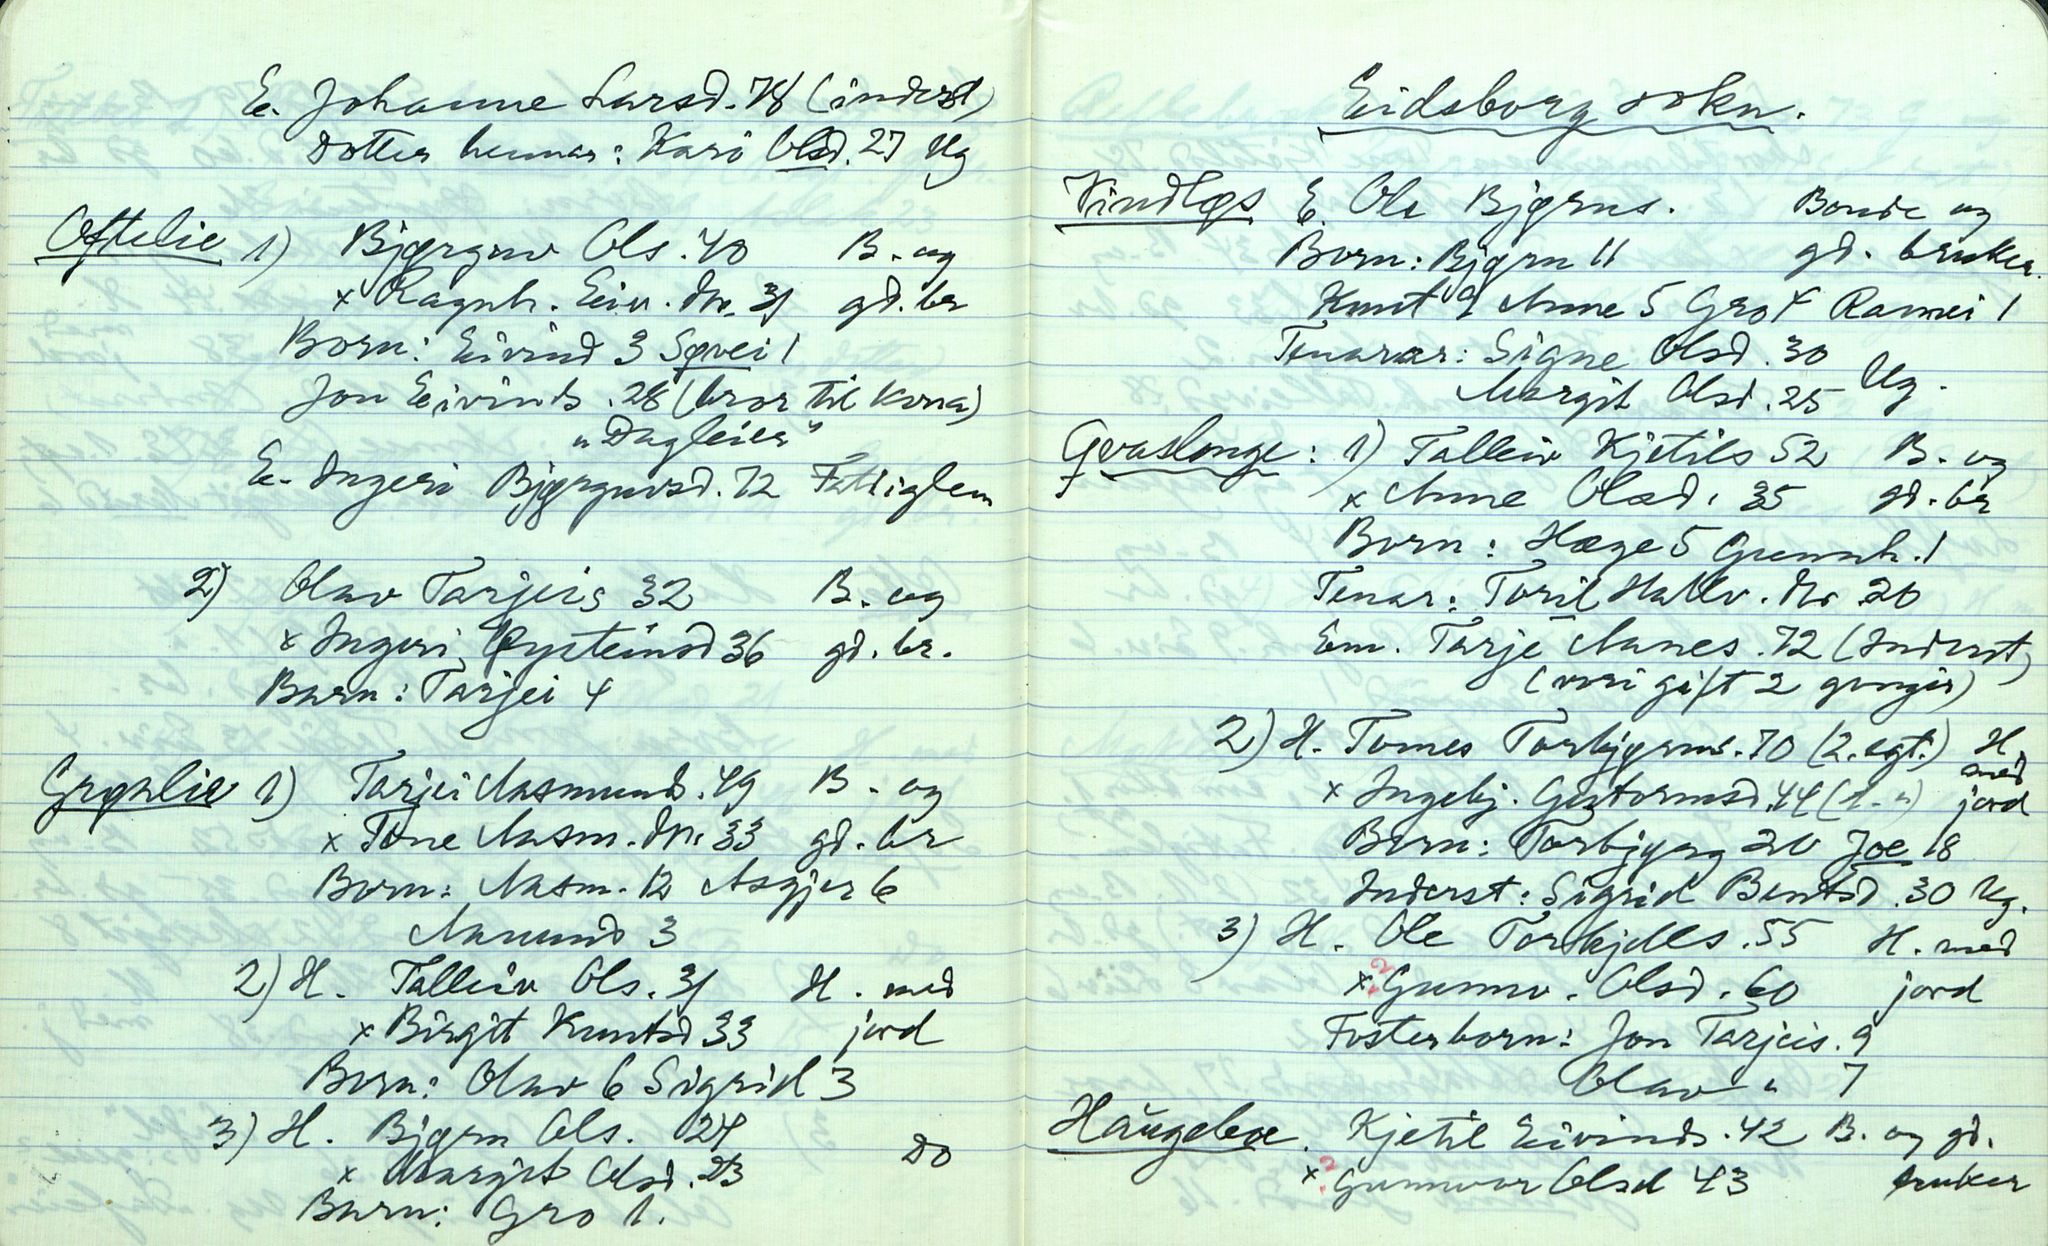 E. Johanne Larsd. 78 (inderst)
Dotter hennar: Kari Olsd. 27 Ug
Oftelie 1) Bjørguv Ols. 40 B. og
x Ragnh. Eiv. dtr. 31 gd. br
Born: Eivind 3 Søvei 1
Jon Eivinds. 28 (bror til kona)
"Dagleier"
E. Ingeri Bjørguvsd. 72 Fattiglem
2) Olav Tarjeis 32 B. og
x Ingeri Øysteinsd 36 gd. br.
Barn: Tarjei 4
Grønlie 1) Tarjei Aasmunds. 49 B. og
x Tone Aasm. dtr. 33 gd. br
Born: Aasm. 12 Asgjer 6
Aanund 3
2) H. Talleiv Ols. 31 H. med
x Birgit Knutsd 33 jord
Born: Olav 6 Sigrid 3
3) H. Bjørn Ols. 24 do
x Margit Olsd. 23
Barn: Gro 1.
Eidsborg sokn.
Vindløs E. Ole Bjørns. Bonde og
Born: Bjørn 11 gd. bruker.
Knut 9 Anne 5 Gro 4 Ramei 1
Tenarar: Signe Olsd. 30
Margit Olsd. 25 Ug.
Gvaslonge: 1) Talleiv Kjetils 52 B. og
x Anne Olsd. 35 gd. br
Born: Hæge 5 Gunnh. 1
Tenar: Toril Hallv. dtr 20
Em. Tarje Aanes. 72 (Inderst)
(vori gift 2 gonger)
2) H. Tomes Torbjørns. 70 (2. egt.) H. med
x Ingebj. Guttormsd. 44 (1. ") jord
Born: Torbjørg 20 Joe 18
Inderst: Sigrid Bentsd. 30 Ug.
3) H. Ole Torkjells. 55 H. med
x 2 Gunnv. Olsd. 60 jord
Fosterborn: Jon Tarjeis. 9
Olav " 7
Haugebøe. Kjetil Eivinds. 42 B. og gd.
x ? Gunnvor Olsd 43 bruker